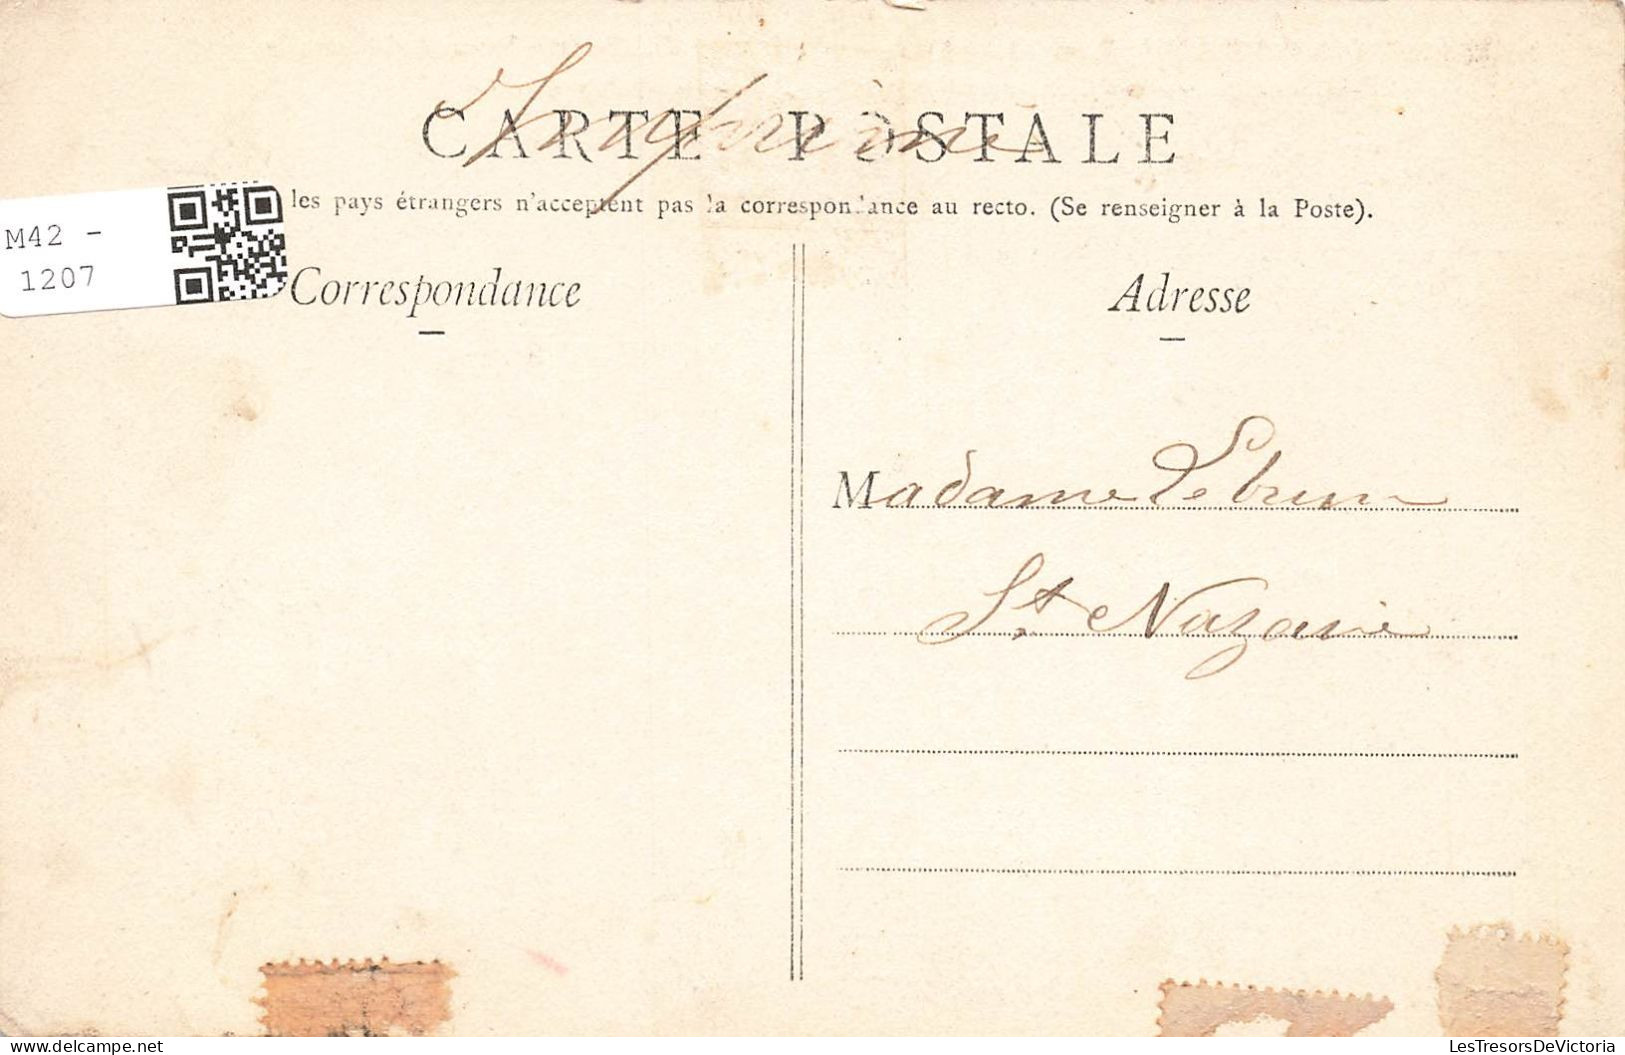 CARTE POSTALE
Imprimé
les pays étrangers n'acceptent pas la correspondance au recto. (Se renseigner à la Poste).
M42 -
1207
Correspondance
Adresse
Madame Lebrun
St Nazaire
LesTresorsDeVictoria